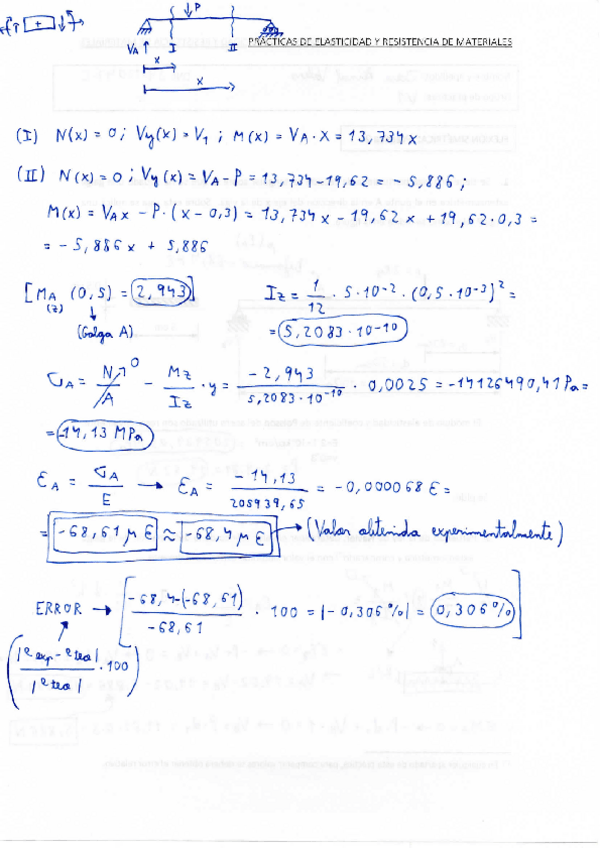 P
+
V_A I II
x
x
PRÁCTICAS DE ELASTICIDAD Y RESISTENCIA DE MATERIALES
(I) N(x) = 0 ; Vy(x) = V1 ; M(x) = VA · X = 13,734x
(II) N(x) = 0 ; Vy(x) = VA - P = 13,734 - 19,62 = - 5,886 ;
M(x) = VAx - P · (x - 0,3) = 13,734x - 19,62x + 19,62·0,3 =
= - 5,886x + 5,886
[MA(z) (0,5) = 2,943] Iz = 1/12 · 5·10^-2 · (0,5·10^-3)^2 =
↓
(Galga A) = 5,2083·10^-10
σA = N/A→0 - Mz/Iz · y = -2,943/5,2083·10^-10 · 0,0025 = -14126490,41 Pa =
= -14,13 MPa
εA = σA/E → εA = -14,13/205939,65 = -0,000068 ε =
= -68,61 μ ε ≈ -68,4 μ ε → (Valor obtenido experimentalmente)
ERROR → [-68,4-(-68,61)/-68,61 · 100 = |-0,306%| = 0,306%]
(|e exp - e teo|/|e teo| · 100)